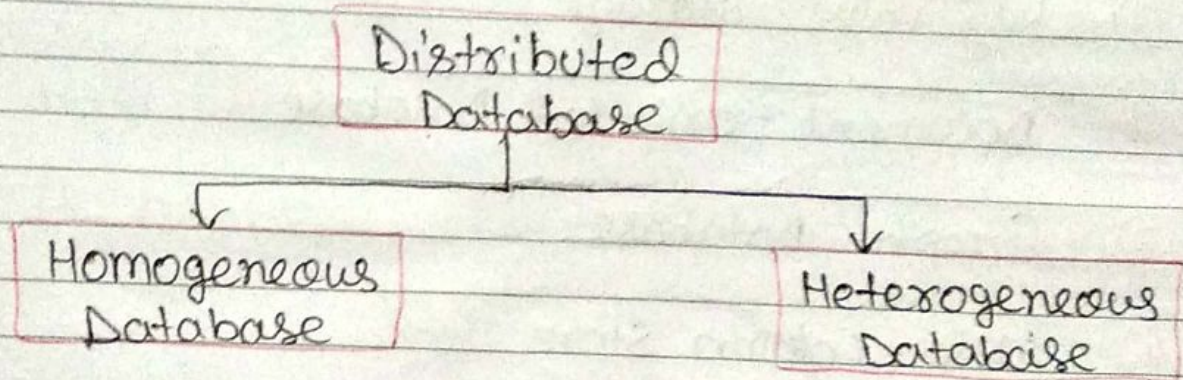 Distributed
Database
Homogeneous
Database
Heterogeneous
Database